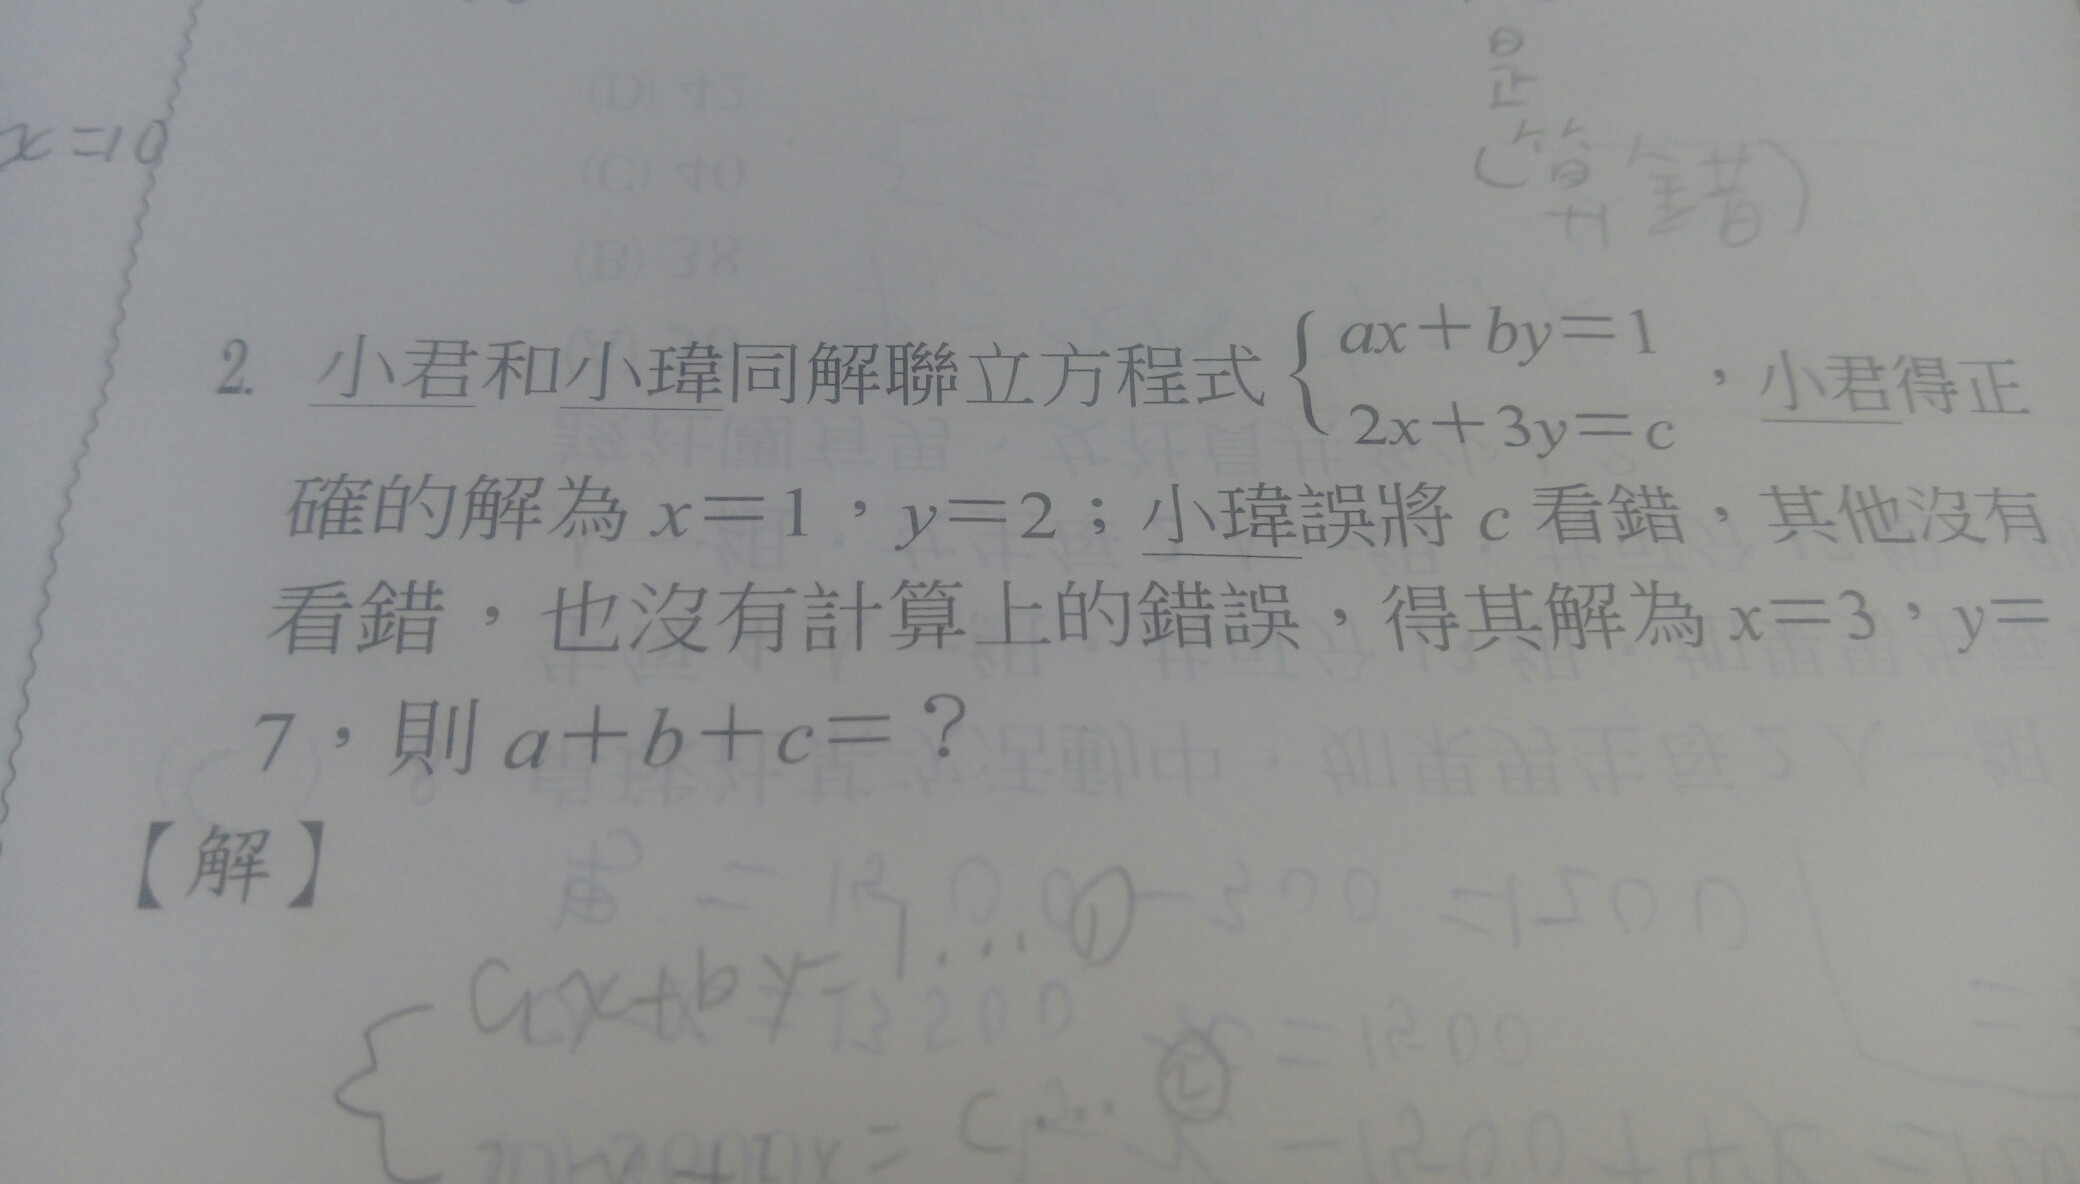 x=10
是
(算錯)
2. 小君和小瑋同解聯立方程式{ax+by=1 2x+3y=c,小君得正
確的解為 x=1,y=2;小瑋誤將 c 看錯,其他沒有
看錯,也沒有計算上的錯誤,得其解為 x=3,y=
7,則 a+b+c=?
【解】
ax+by=1...①
=c...②